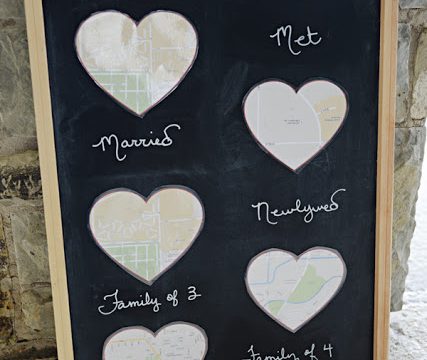 Met
Married
Newlywed
Family of 3
Family of 4